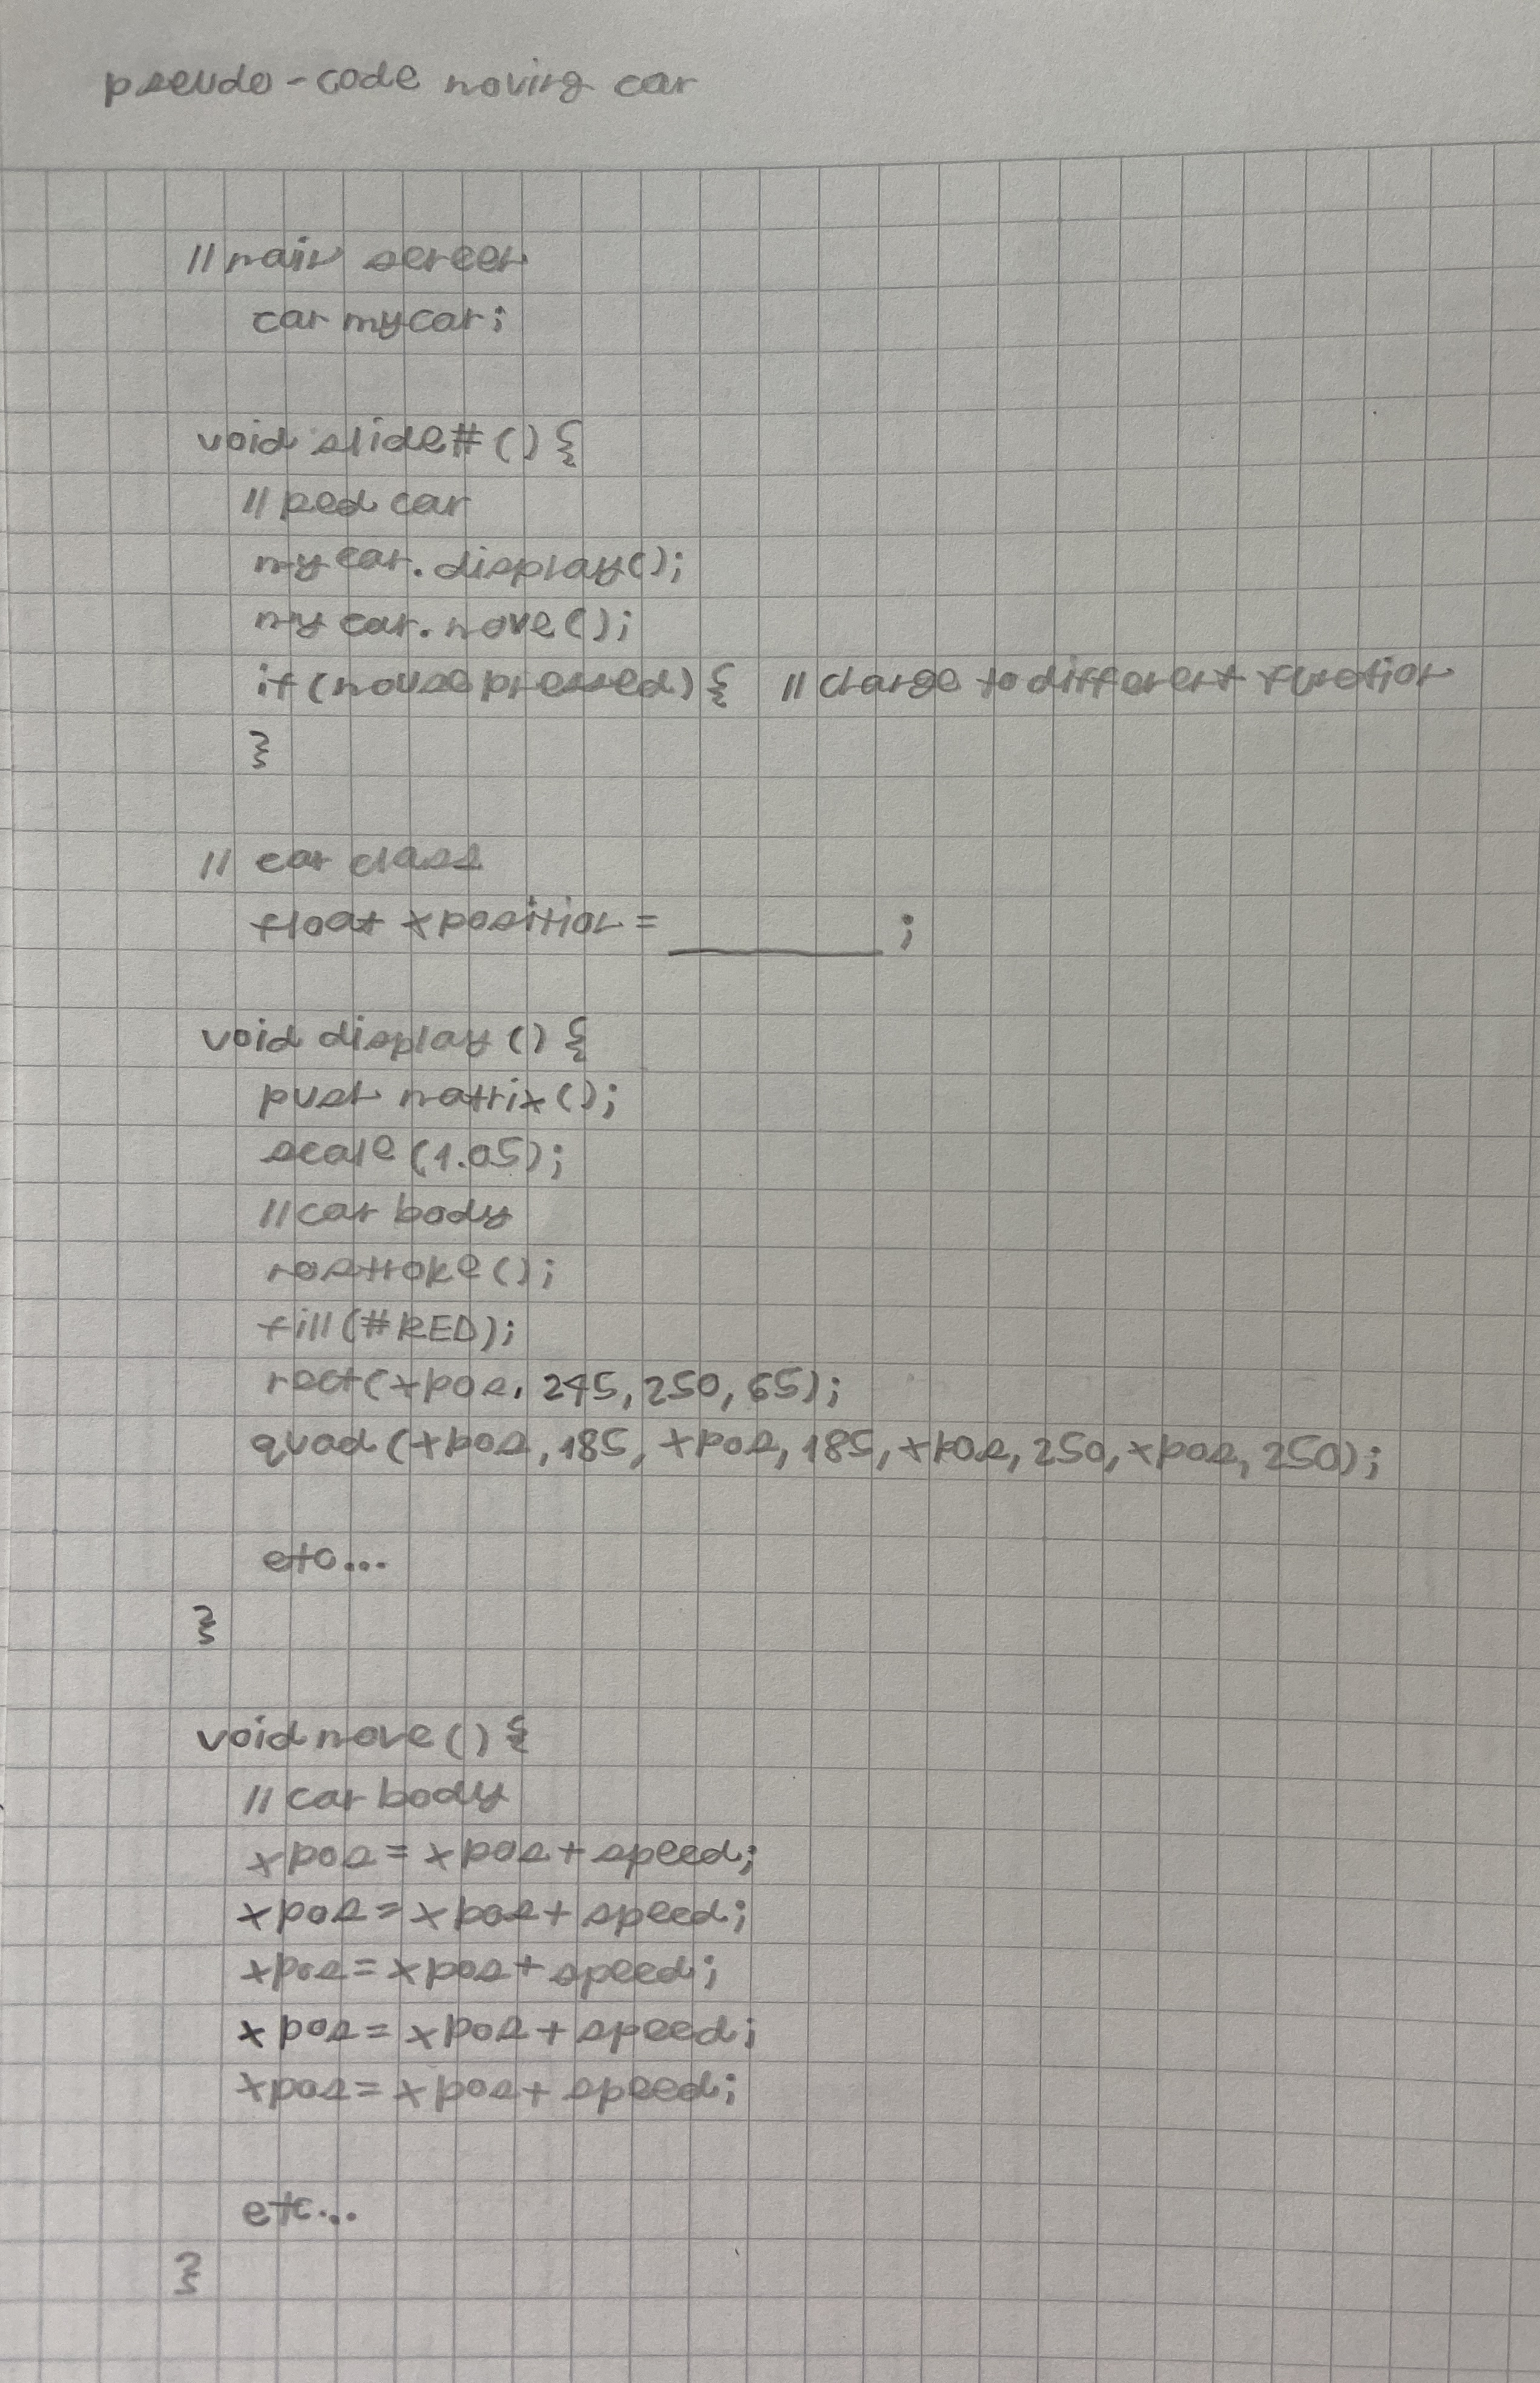 pseudo-code moving car
// main screen
car mycar;
void slide#(){
// Red car
my car.display();
my car.move();
if(mousepressed){ // change to different function
}
// car class
float xposition = ________ ;
void display(){
push matrix();
scale(1.05);
// car body
nostroke();
fill(#RED);
rect(xpos, 245, 250, 65);
quad(xpos, 185, xpos, 185, xpos, 250, xpos, 250);
etc...
}
void move(){
// car body
xpos = xpos + speed;
xpos = xpos + speed;
xpos = xpos + speed;
xpos = xpos + speed;
xpos = xpos + speed;
etc...
}